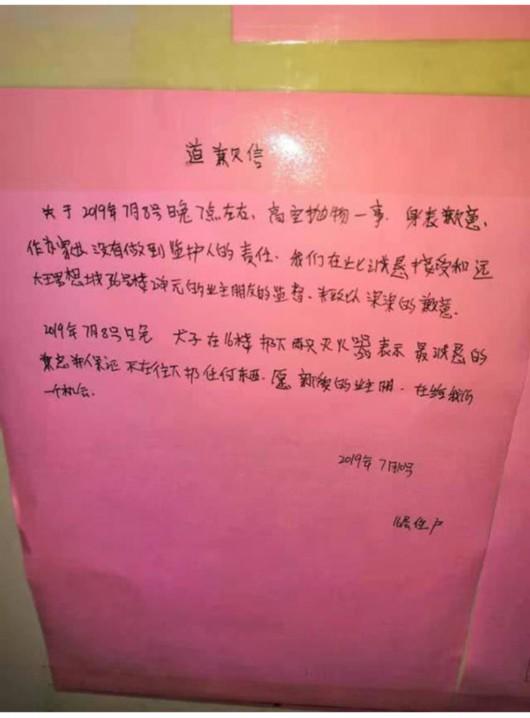 道歉信
关于2019年7月8号晚7点左右,高空抛物一事.身表歉意,
作为家长没有做到监护人的责任.我们在此诚恳接受和远
大理想城 号楼2单元的业主朋友的监督.来致以深深的歉意.
2019年7月8号晚 犬子在16楼扔下两只灭火器表示最诚恳的
歉意并保证不在往下扔任何东西.愿 的业主朋.在给我们
一个机会.
2019年7月10号
16层住户